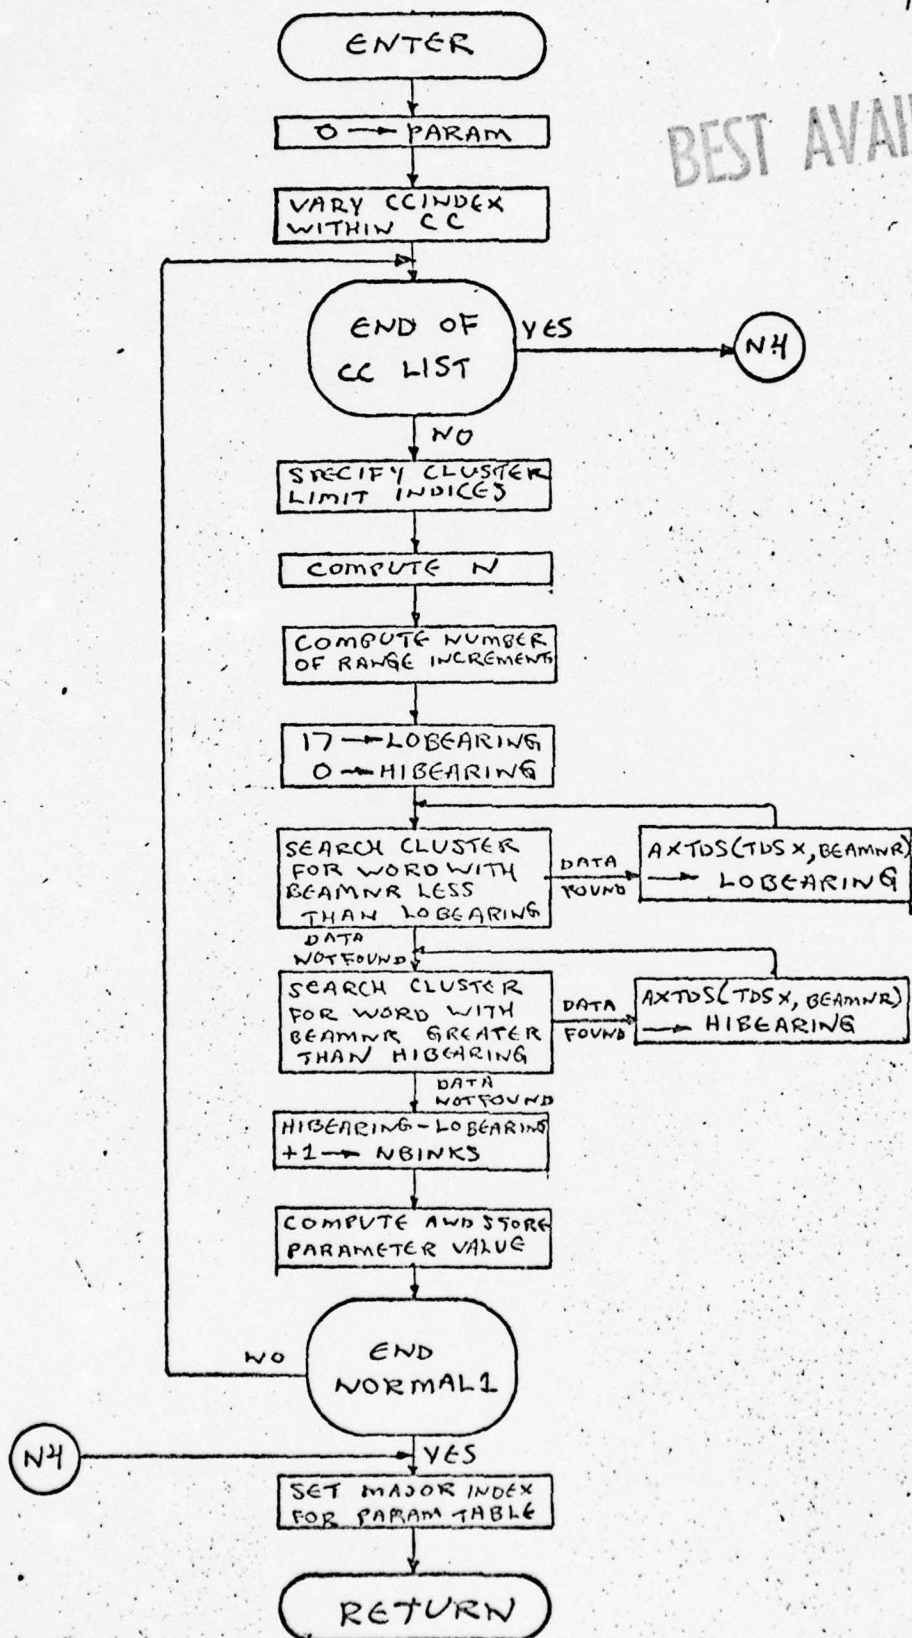 ENTER
BEST AVAI
0 → PARAM
VARY CCINDEX
WITHIN CC
END OF
CC LIST
YES
N4
NO
SPECIFY CLUSTER
LIMIT INDICES
COMPUTE N
COMPUTE NUMBER
OF RANGE INCREMENTS
17 → LOBEARING
0 → HIBEARING
SEARCH CLUSTER
FOR WORD WITH
BEAMNR LESS
THAN LOBEARING
DATA
FOUND
AXTDS(TDSX, BEAMNR)
→ LOBEARING
DATA
NOT FOUND
SEARCH CLUSTER
FOR WORD WITH
BEAMNR GREATER
THAN HIBEARING
DATA
FOUND
AXTDS(TDSX, BEAMNR)
→ HIBEARING
DATA
NOT FOUND
HIBEARING-LOBEARING
+1 → NBINKS
COMPUTE AND STORE
PARAMETER VALUE
END
NORMAL1
NO
N4
YES
SET MAJOR INDEX
FOR PARAM TABLE
RETURN